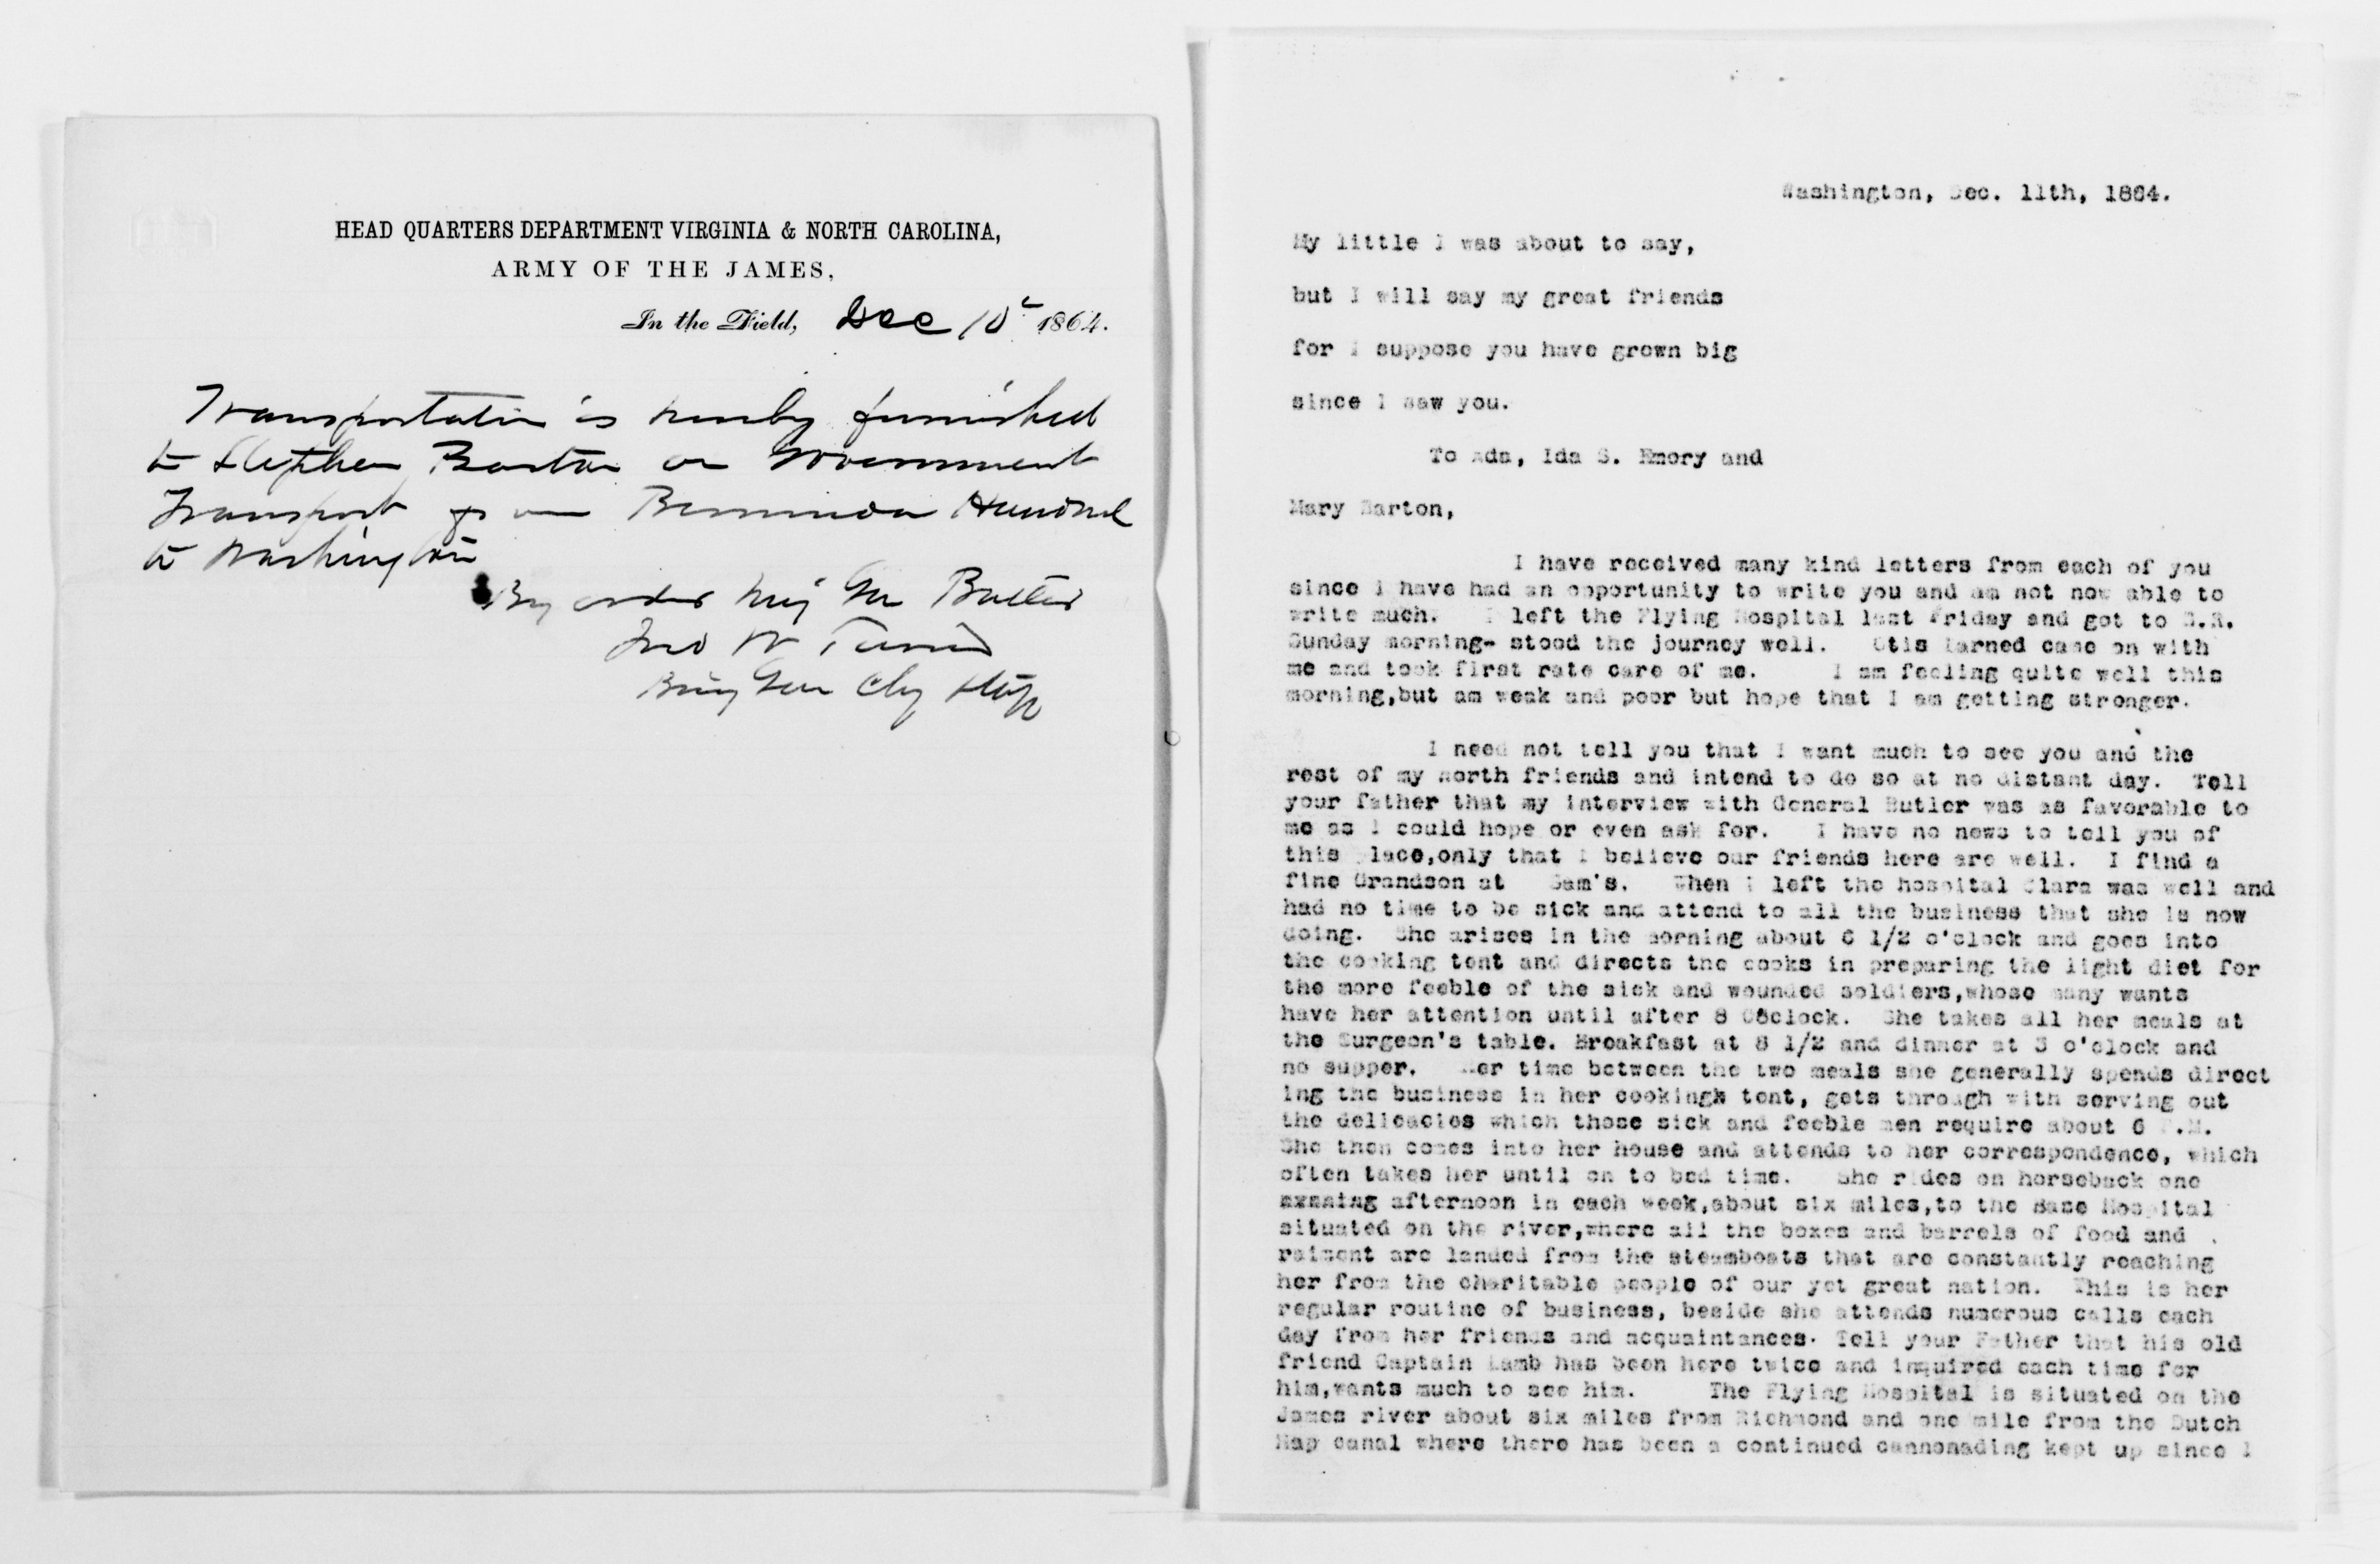 HEAD QUARTERS DEPARTMENT VIRGINIA & NORTH CAROLINA,
ARMY OF THE JAMES,
In the Field, Dec 10 1864.
Transportation is hereby furnished
to Stephen Barton on Government
Transport from Bermuda Hundred
to Washington
By order Maj Gen Butler
Jno W Turner
Brig Gen Chf Staff
Washington, Dec. 11th, 1864.
My little I was about to say,
but I will say my great friends
for I suppose you have grown big
since I saw you.
To Ada, Ida S. Emory and
Mary Barton,
I have received many kind letters from each of you
since I have had an opportunity to write you and am not now able to
write much. I left the Flying Hospital last Friday and got to
Sunday morning- stood the journey well. Otis Larned came on with
me and took first rate care of me. I am feeling quite well this
morning,but am weak and poor but hope that I am getting stronger.
I need not tell you that I want much to see you and the
rest of my north friends and intend to do so at no distant day. Tell
your father that my interview with General Butler was as favorable to
me as I could hope or even ask for. I have no news to tell you of
this place,only that I believe our friends here are well. I find a
fine Grandson at Sam's. When I left the hospital Clara was well and
had no time to be sick and attend to all the business that she is now
doing. She arises in the morning about 6 1/2 o'clock and goes into
the cooking tent and directs the cooks in preparing the light diet for
the more feeble of the sick and wounded soldiers,whose many wants
have her attention until after 8 O'clock. She takes all her meals at
the Surgeon's table. Breakfast at 8 1/2 and dinner at 3 o'clock and
no supper. Her time between the two meals she generally spends direct
ing the business in her cookingh tent, gets through with serving out
the delicacies which those sick and feeble men require about 6 P.M.
She then comes into her house and attends to her correspondence, which
often takes her until on to bed time. She rides on horseback one
afternoon in each week,about six miles,to the Base Hospital
situated on the river,where all the boxes and barrels of food and
raiment are landed from the steamboats that are constantly reaching
her from the charitable people of our yet great nation. This is her
regular routine of business, beside she attends numerous calls each
day from her friends and acquaintances. Tell your Father that his old
friend Captain Lamb has been here twice and inquired each time for
him,wants much to see him. The Flying Hospital is situated on the
James river about six miles from Richmond and one mile from the Dutch
Hap canal where there has been a continued cannonading kept up since I